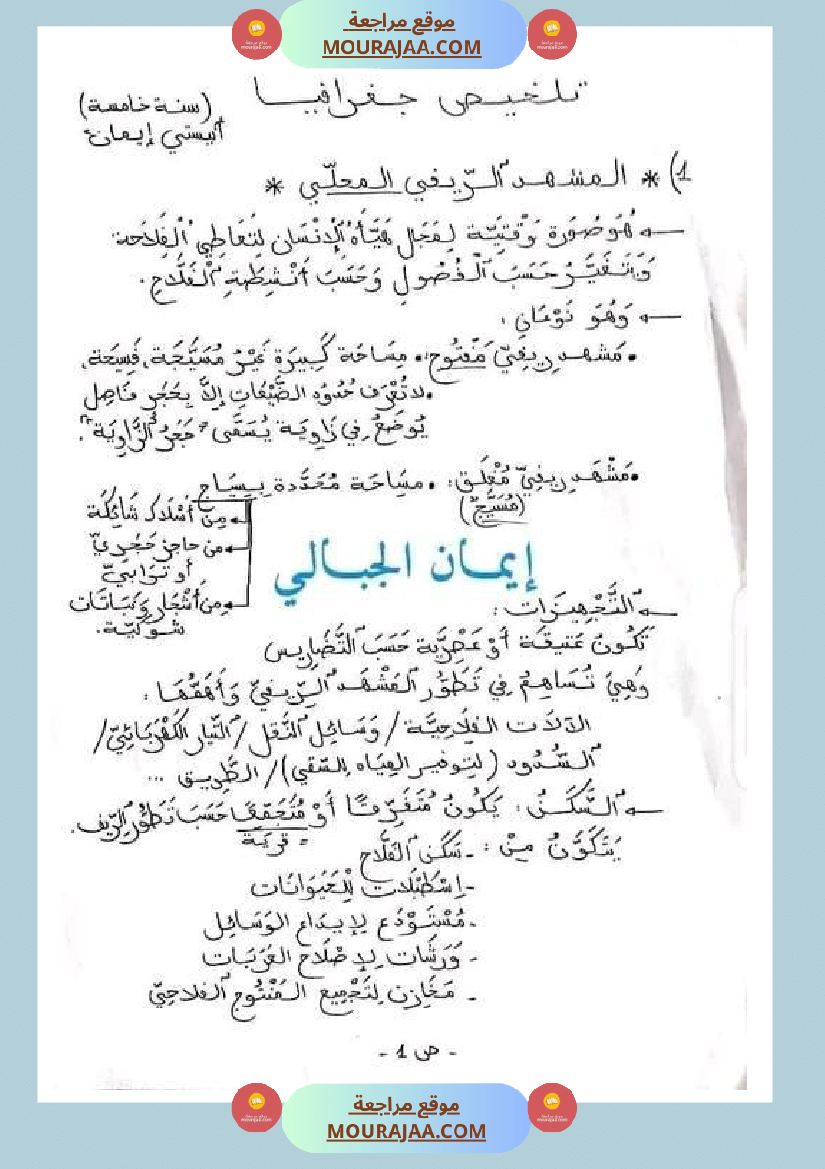 موقع مراجعة
MOURAJAA.COM
تلخيص جغرافيا
(سنة خامسة)
آنستي إيمان
1) * المشهد الرّيفي المحلّي *
هُوَ صُورَة وَقْتِيَّة لِمَجَال هَيَّأَهُ الْإِنْسَان لِتَعَاطِي الْفِلَاحَة
وَتَتَغَيَّرُ حَسَبَ الْفُصُولِ وَحَسَبَ أَنْشِطَةِ الْفَلَّاحِ.
وَهُوَ نَوْعَانِ:
• مَشهد رِيفِيّ مَفْتُوح: • مِسَاحَة كَبِيرَة غَيْرُ مُسَيَّجَة، فَسِيحَة،
• لا تُعْرَف حُدُود الضَّيْعَاتِ إِلَّا بِحَجَرٍ فَاصِل
يُوضَعُ فِي زَاوِيَة يُسَمَّى "حَجَرُ الزَّاوِيَة".
• مَشْهَد رِيفِيّ مُغْلَق: • مِسَاحَة مُحَدَّدَة بِسِيَاج
(مُسَيَّج)
مِنْ أَسْلَاك شَائِكَة
من حاجز حَجَرِيّ
أو تُرَابِيّ
مِنْ أَشْجَار وَنَبَاتَات
شوكيّة.
إيمان الجبالي
التَّجْهِيزَات:
تَكُونُ عَتِيقَة أَوْ عَصْرِيَّة حَسَبَ التَّضَارِيس
وَهِيَ تُسَاهِمُ فِي تَطَوُّرِ الْمَشْهَد الرِّيفِيِّ وَأَهَمُّهَا:
الآلَات الفِلَاحِيَّة / وَسَائِل النَّقْل / التَّيَار الكَهْرَبَائِيّ /
السُّدُود (لتوفير المياه للسّقي) / الطَّرِيق ...
السَّكَنُ: يَكُونُ مُتَفَرِّقًا أَوْ مُتَجَمِّعًا حَسَبَ تَطَوُّرِ الرِّيف.
= قرية
يَتَكَوَّنُ مِنْ: - سَكَن الفَلَّاح
- إِسْطَبْلَات لِلْحَيَوَانَات
- مُسْتَوْدَع لِإِيدَاع الوَسَائِل
- وَرَشَات لِإِصْلَاح العَرَبَات
- مَخَازِن لِتَجْمِيع المَنْتُوج الفلاحِيّ
- ص 1 -
موقع مراجعة
MOURAJAA.COM